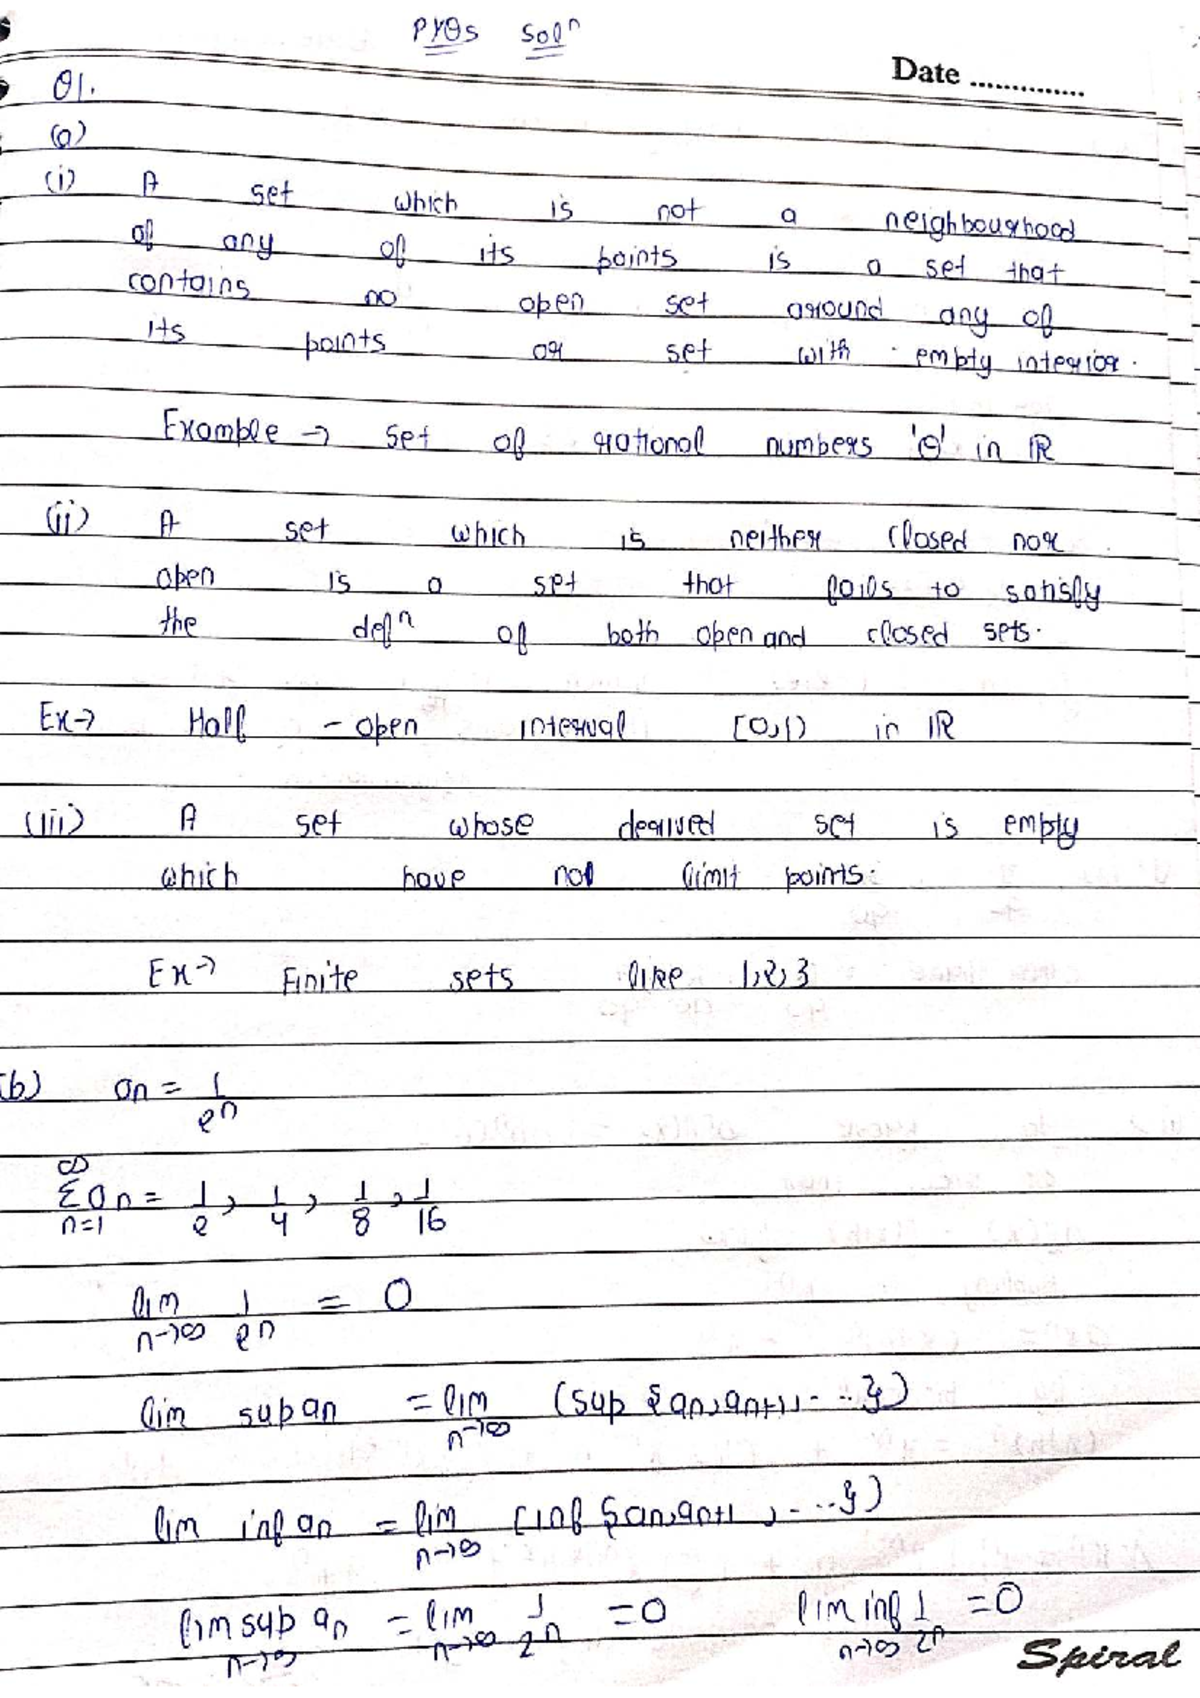 PYQs Solⁿ
Date ..............
Q1.
(a)
(i) A set which is not a neighbourhood
of any of its points is a set that
contains no open set around any of
its points or set with empty interior.
Example → set of rational numbers 'Q' in ℝ
(ii) A set which is neither closed nor
open is a set that fails to satisfy
the defⁿ of both open and closed sets.
Ex→ Half - open interval [0,1) in ℝ
(iii) A set whose derived set is empty
which have not limit points.
Ex→ Finite sets like 1,2,3
(b) an = 1/2ⁿ
∞Σn=1 an = 1/2, 1/4, 1/8, 1/16
lim n→∞ 1/2ⁿ = 0
lim sup an = lim n→∞ (sup {an, an+1, - ..})
lim inf an = lim n→∞ [inf {an, an+1, - ..})
lim sup n→∞ an = lim n→∞ 1/2ⁿ = 0 lim inf n→∞ 1/2ⁿ = 0
Spiral